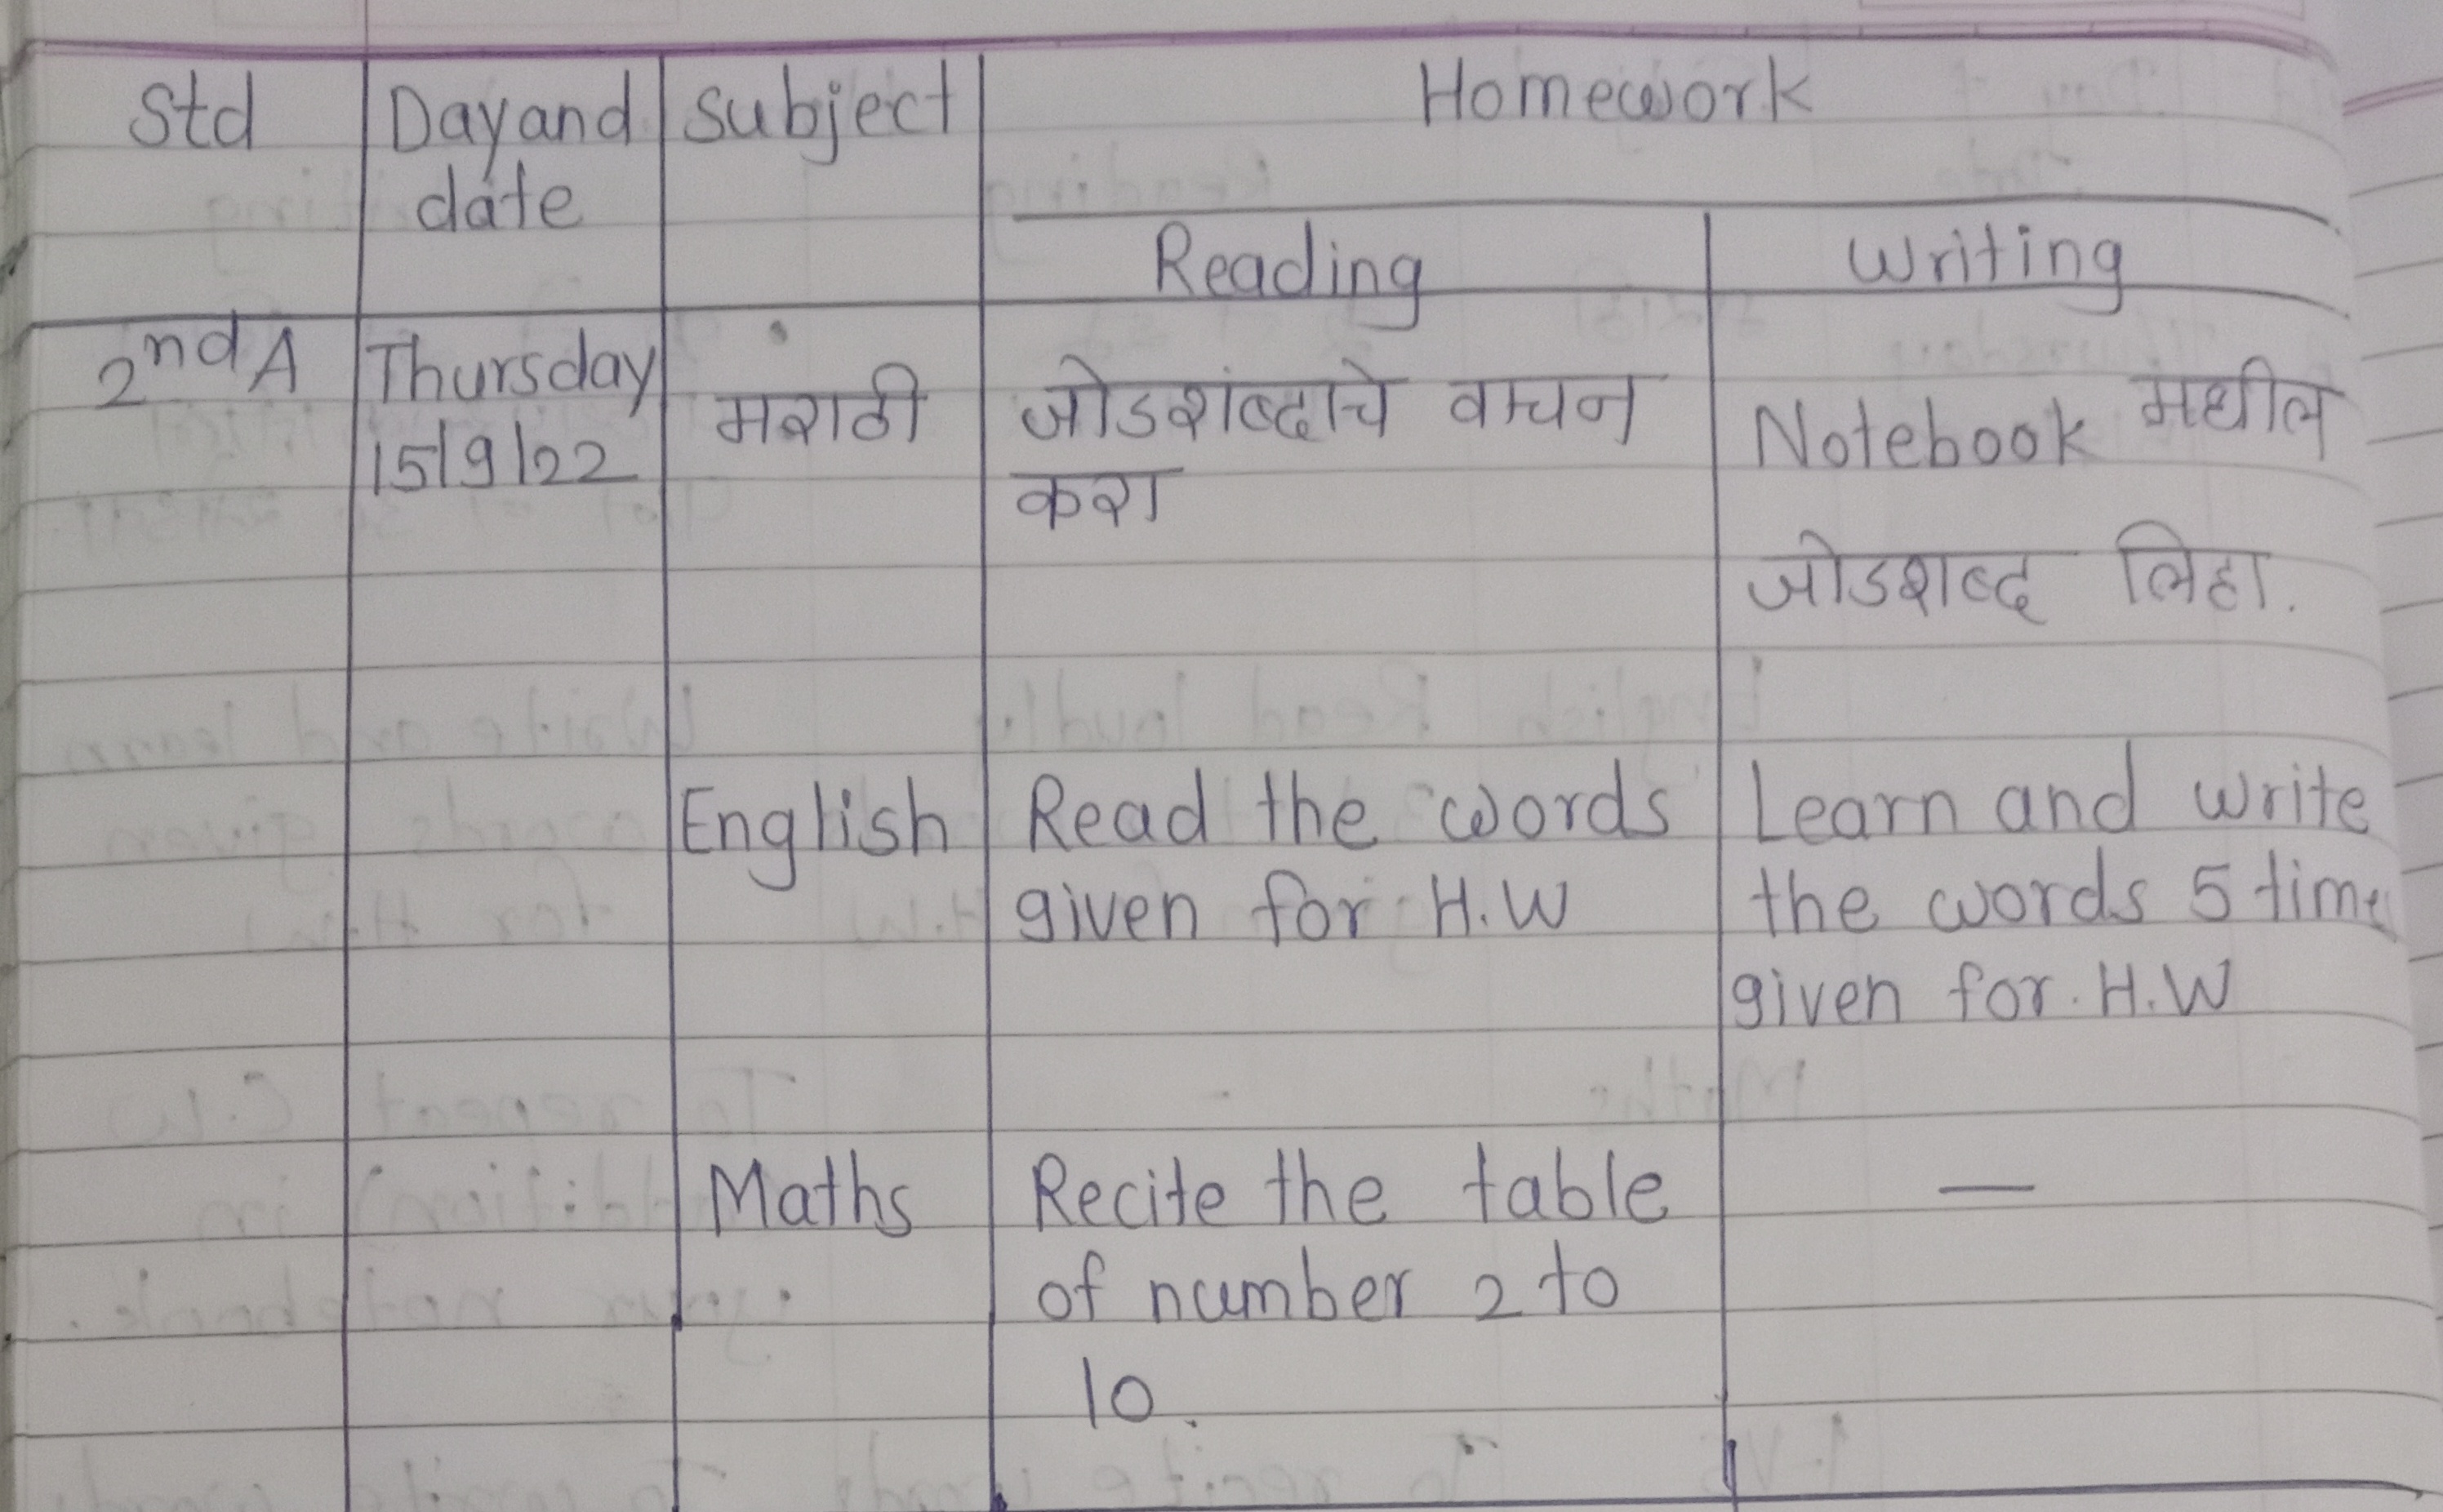 Std Day and subject Homework
date
Reading Writing
2nd A Thursday मराठी जोडशब्दांचे वाचन Notebook मधील
15/9/22 करा
जोडशब्द लिहा.
English Read the words Learn and write
given for H.W the words 5 time
given for. H.W
Maths Recite the table —
of number 2 to
10.